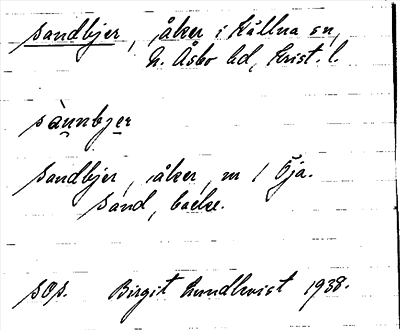 sandbjer, åker i Källna sn,
N. Åsbo hd, Krist. l.
sànnbjer
sandbjer, åker, nr 1 Öja.
sand, backe.
sOs. Birgit Lundkvist 1938.